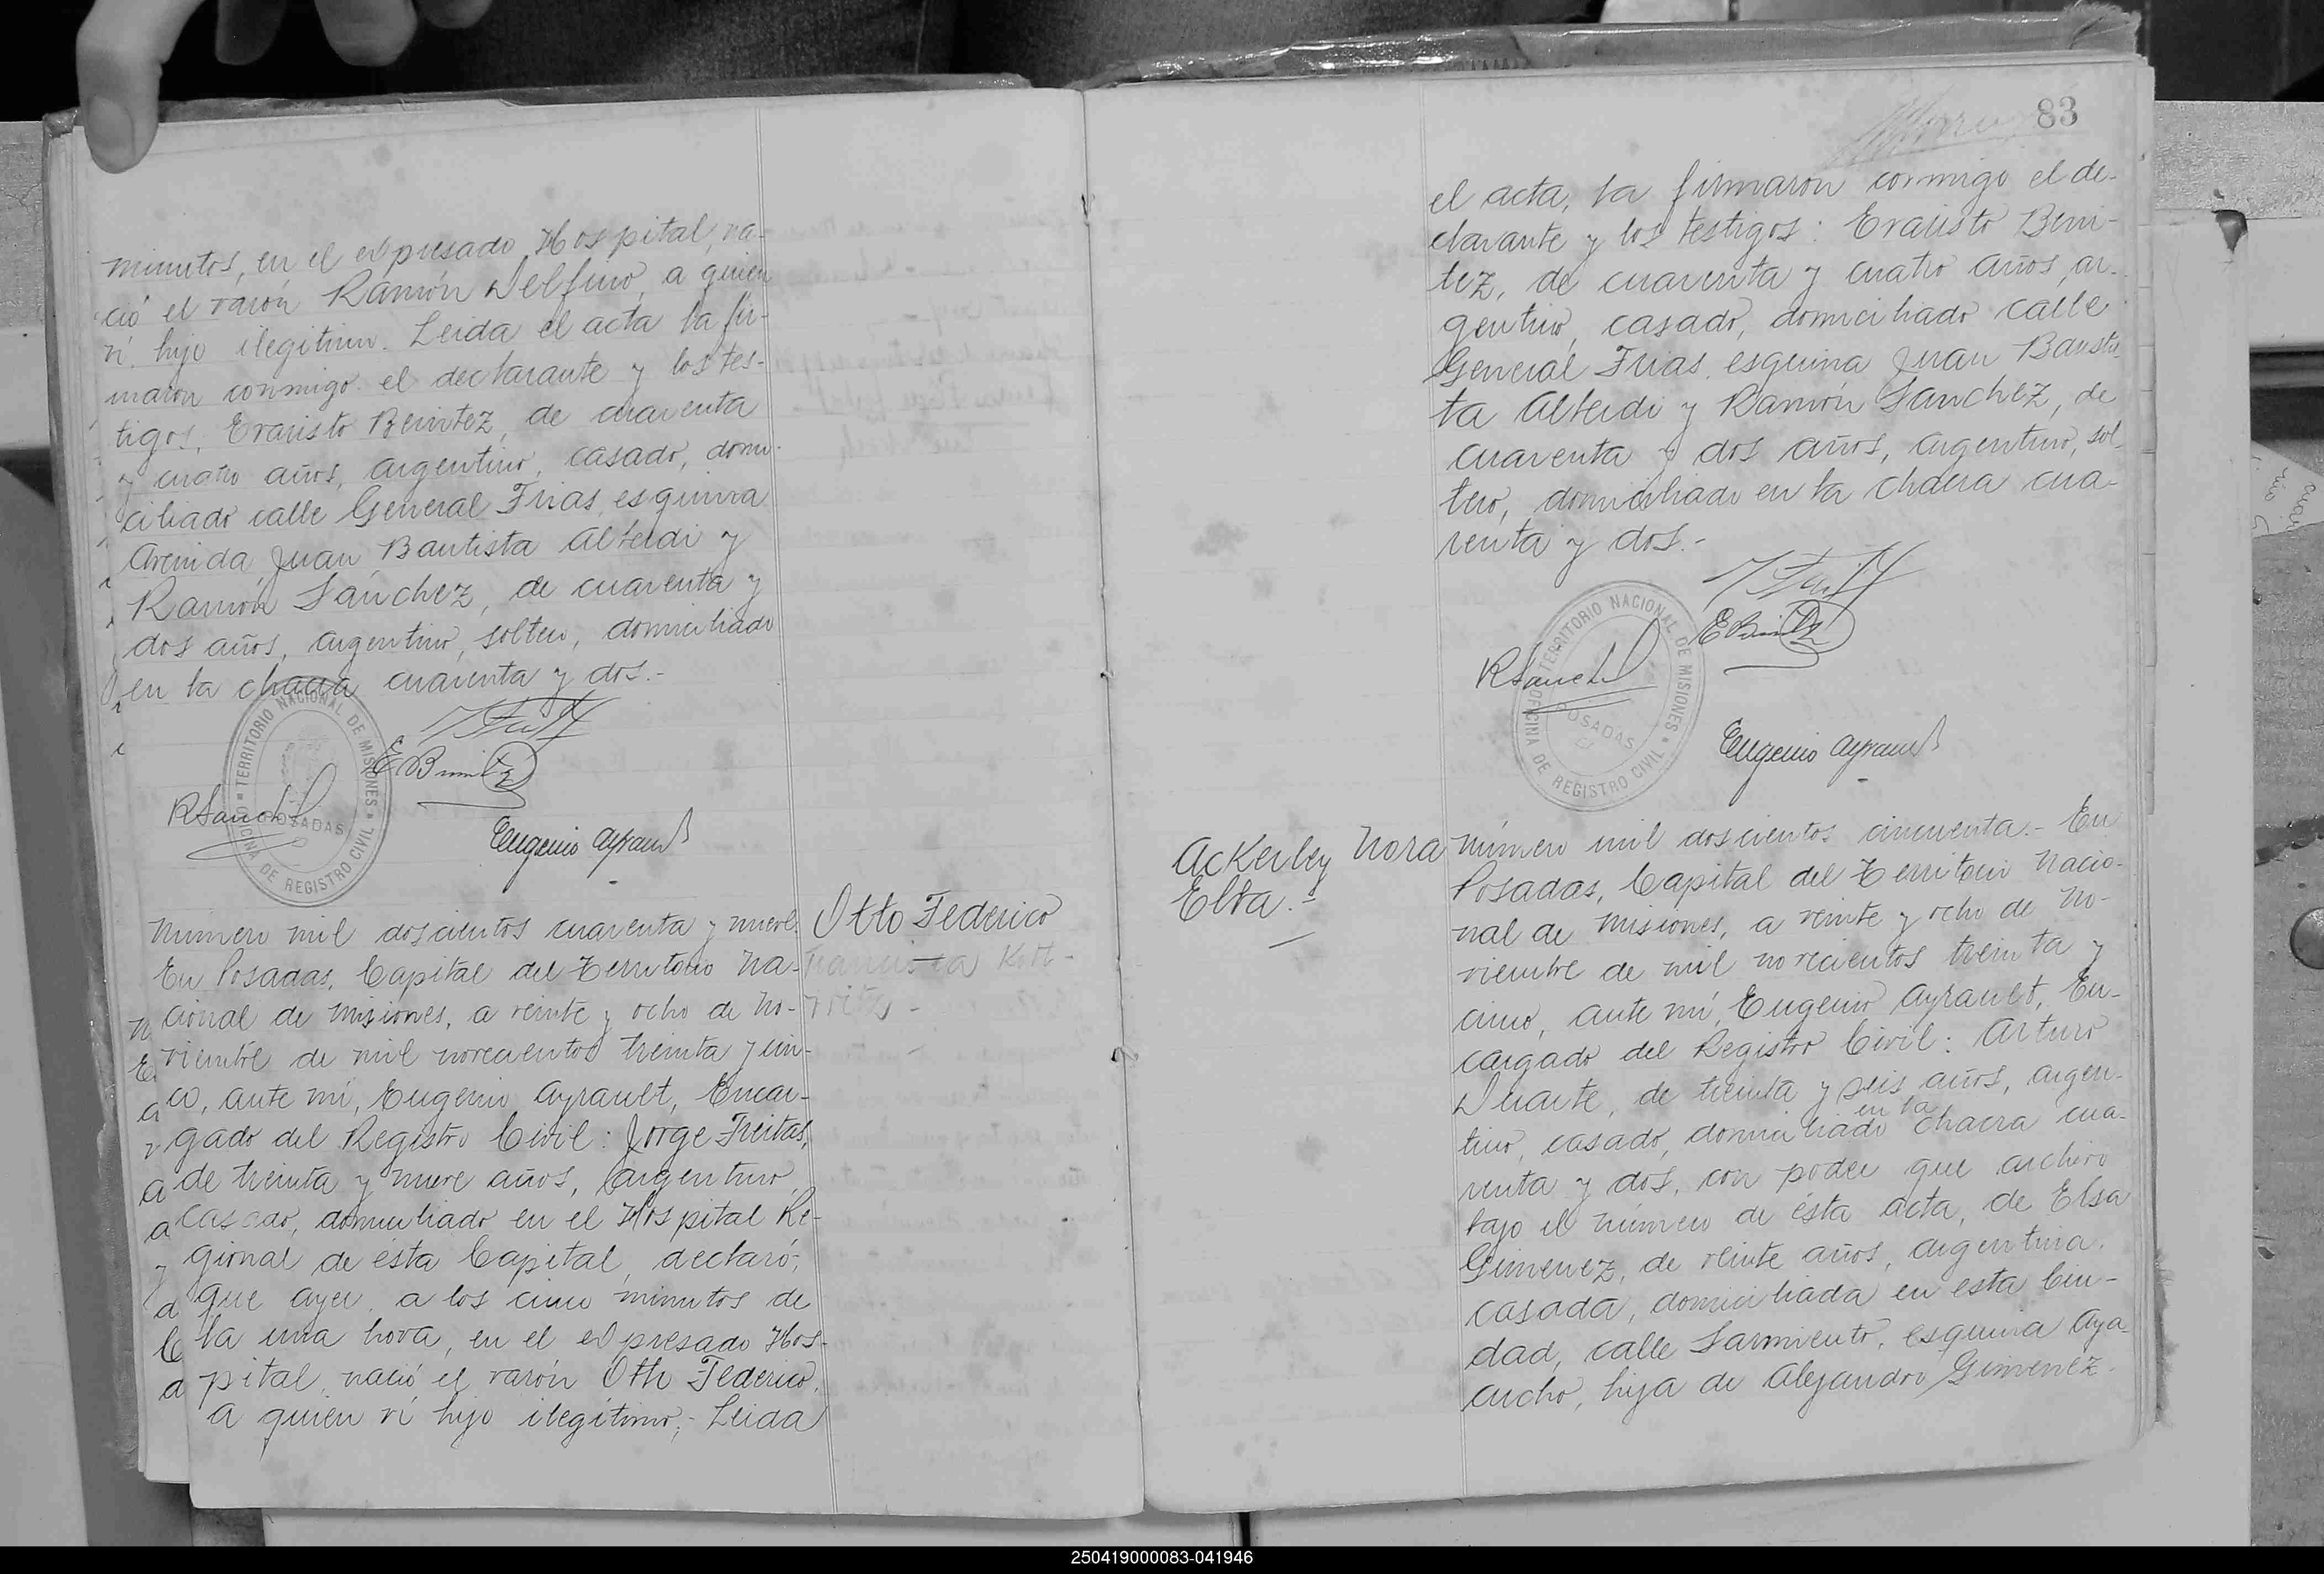 minutos, en el expresado Hospital, na-
ció el varón Ramón Delfino, a quien
ví, hijo ilegitimo. Leida el acta la fir-
maron conmigo el declarante y los tes-
tigos: Evaristo Benitez, de cuarenta
y cuatro años, argentino, casado, domi-
ciliado calle General Frias, esquina
Avenida Juan Bautista Alberdi y
Ramón Sánchez, de cuarenta y
dos años, argentino, soltero, domiciliado
en la chacra cuarenta y dos.-
TERRITORIO NACIONAL DE MISIONES
OFICINA DE REGISTRO CIVIL
POSADAS
E Benitez
R Sanch
Eugenio Ayrault
Número mil doscientos cuarenta y nueve
En Posadas, Capital del Territorio Na-
cional de Misiones, a veinte y ocho de No-
viembre de mil novecientos treinta y cin-
co, ante mí, Eugenio Ayrault, Encar-
gado del Registro Civil: Jorge Freitas,
de treinta y nueve años, argentino,
casado, domiciliado en el Hospital Re-
gional de ésta Capital, declaró;
que ayer, a los cinco minutos de
la una hora, en el expresado Hos-
pital, nació el varón Otto Federico,
a quien ví hijo ilegítimo;- Leida
Otto Federico
83
el acta, la firmaron conmigo el de-
clarante y los testigos: Evaristo Beni-
tez, de cuarenta y cuatro años, ar-
gentino, casado, domiciliado calle
General Frias, esquina Juan Bautis
ta Alberdi y Ramón Sanchez, de
cuarenta y dos años, argentino, sol
tero, domiciliado en la chacra cua-
renta y dos.-
TERRITORIO NACIONAL DE MISIONES
OFICINA DE REGISTRO CIVIL
POSADAS
E Benitez
R Sanch
Eugenio Ayrault
Ackerley Nora
Elba.-
Número mil doscientos cincuenta.- En
Posadas, Capital del Territorio Nacio-
nal de Misiones, a veinte y ocho de No-
viembre de mil novecientos treinta y
cinco, ante mí, Eugenio Ayrault, En-
cargado del Registro Civil: Arturo
Duarte, de treinta y seis años, argen-
tino, casado, domiciliado en la chacra cua-
renta y dos, con poder que archivo
bajo el número de ésta acta, de Elsa
Gimenez, de veinte años, argentina,
casada, domiciliada en esta Ciu-
dad, calle Sarmiento, esquina Aya-
cucho, hija de Alejandro Gimenez.
250419000083-041946